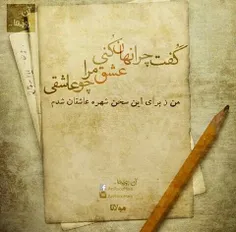 گفت چرا نهان کنی
عشق مرا چو عاشقی
من ز برای این سخن شهره عاشقان شدم
مولانا